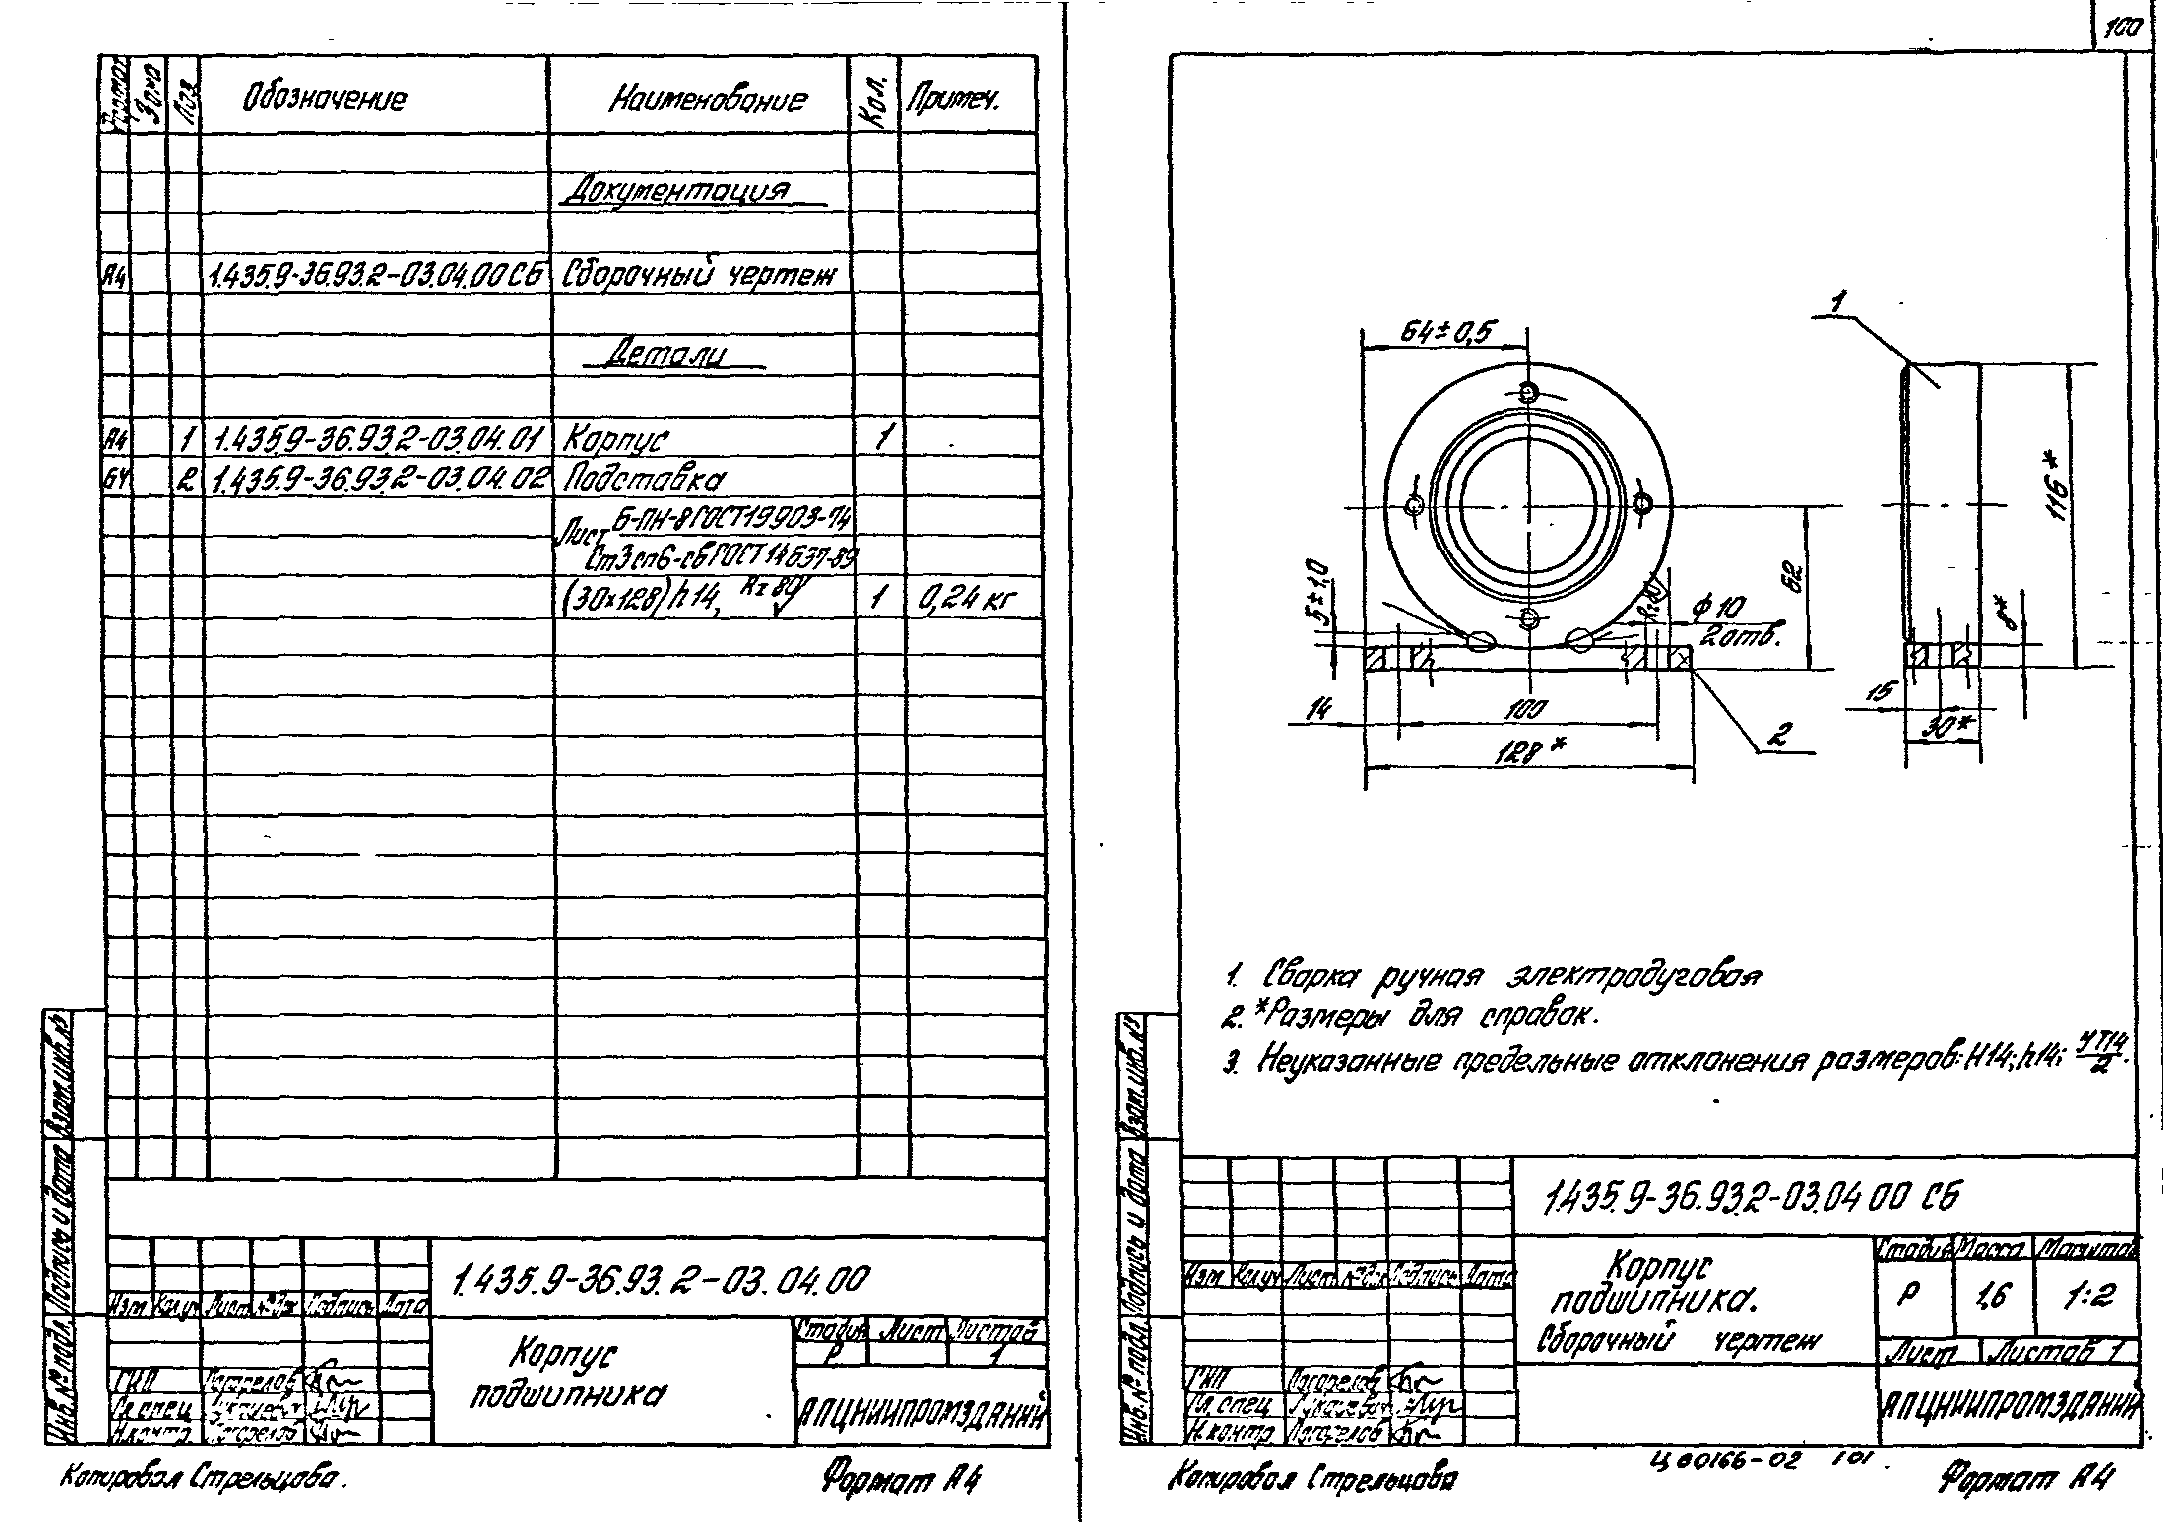 Формат Зона Поз. Обозначение Наименование Кол. Примеч.
Документация
А4 1.435.9-36.93.2-03.04.00СБ Сборочный чертеж
Детали
А4 1 1.435.9-36.93.2-03.04.01 Корпус 1
БЧ 2 1.435.9-36.93.2-03.04.02 Подставка
Лист Б-ПН-8 ГОСТ 19903-74
Ст3сп6-св ГОСТ 14637-89
(30×128) h14, Rz 80 1 0,24 кг
Взам.инв.№
Подпись и дата
Инв.№ подл.
1.435.9-36.93.2-03.04.00
Изм Кол.уч Лист №док Подпись Дата
Корпус
подшипника
Стадия Лист Листов
Р 1
ГИП Погорелов
Гл.спец
Н.контр. Погорелов
АПЦНИИПРОМЗДАНИЙ
Копировал Стрельцова.
Формат А4
100
64±0,5
1
116*
62
5±1,0
ϕ10
2отв.
8*
14
100
128*
2
15
30*
1. Сварка ручная электродуговая
2. *Размеры для справок.
3. Неуказанные предельные отклонения размеров: H14; h14; УТ14/2.
Взам.инв.№
Подпись и дата
Инв.№ подл.
1.435.9-36.93.2-03.04 00 СБ
Изм Кол.уч Лист №док Подпись Дата
Корпус
подшипника.
Сборочный чертеж
Стадия Масса Масштаб
Р 1,6 1:2
Лист Листов 1
ГИП Погорелов
Гл. спец
Н.контр. Погорелов
АПЦНИИПРОМЗДАНИЙ
Копировал Стрельцова
Ц00166-02 101
Формат А4